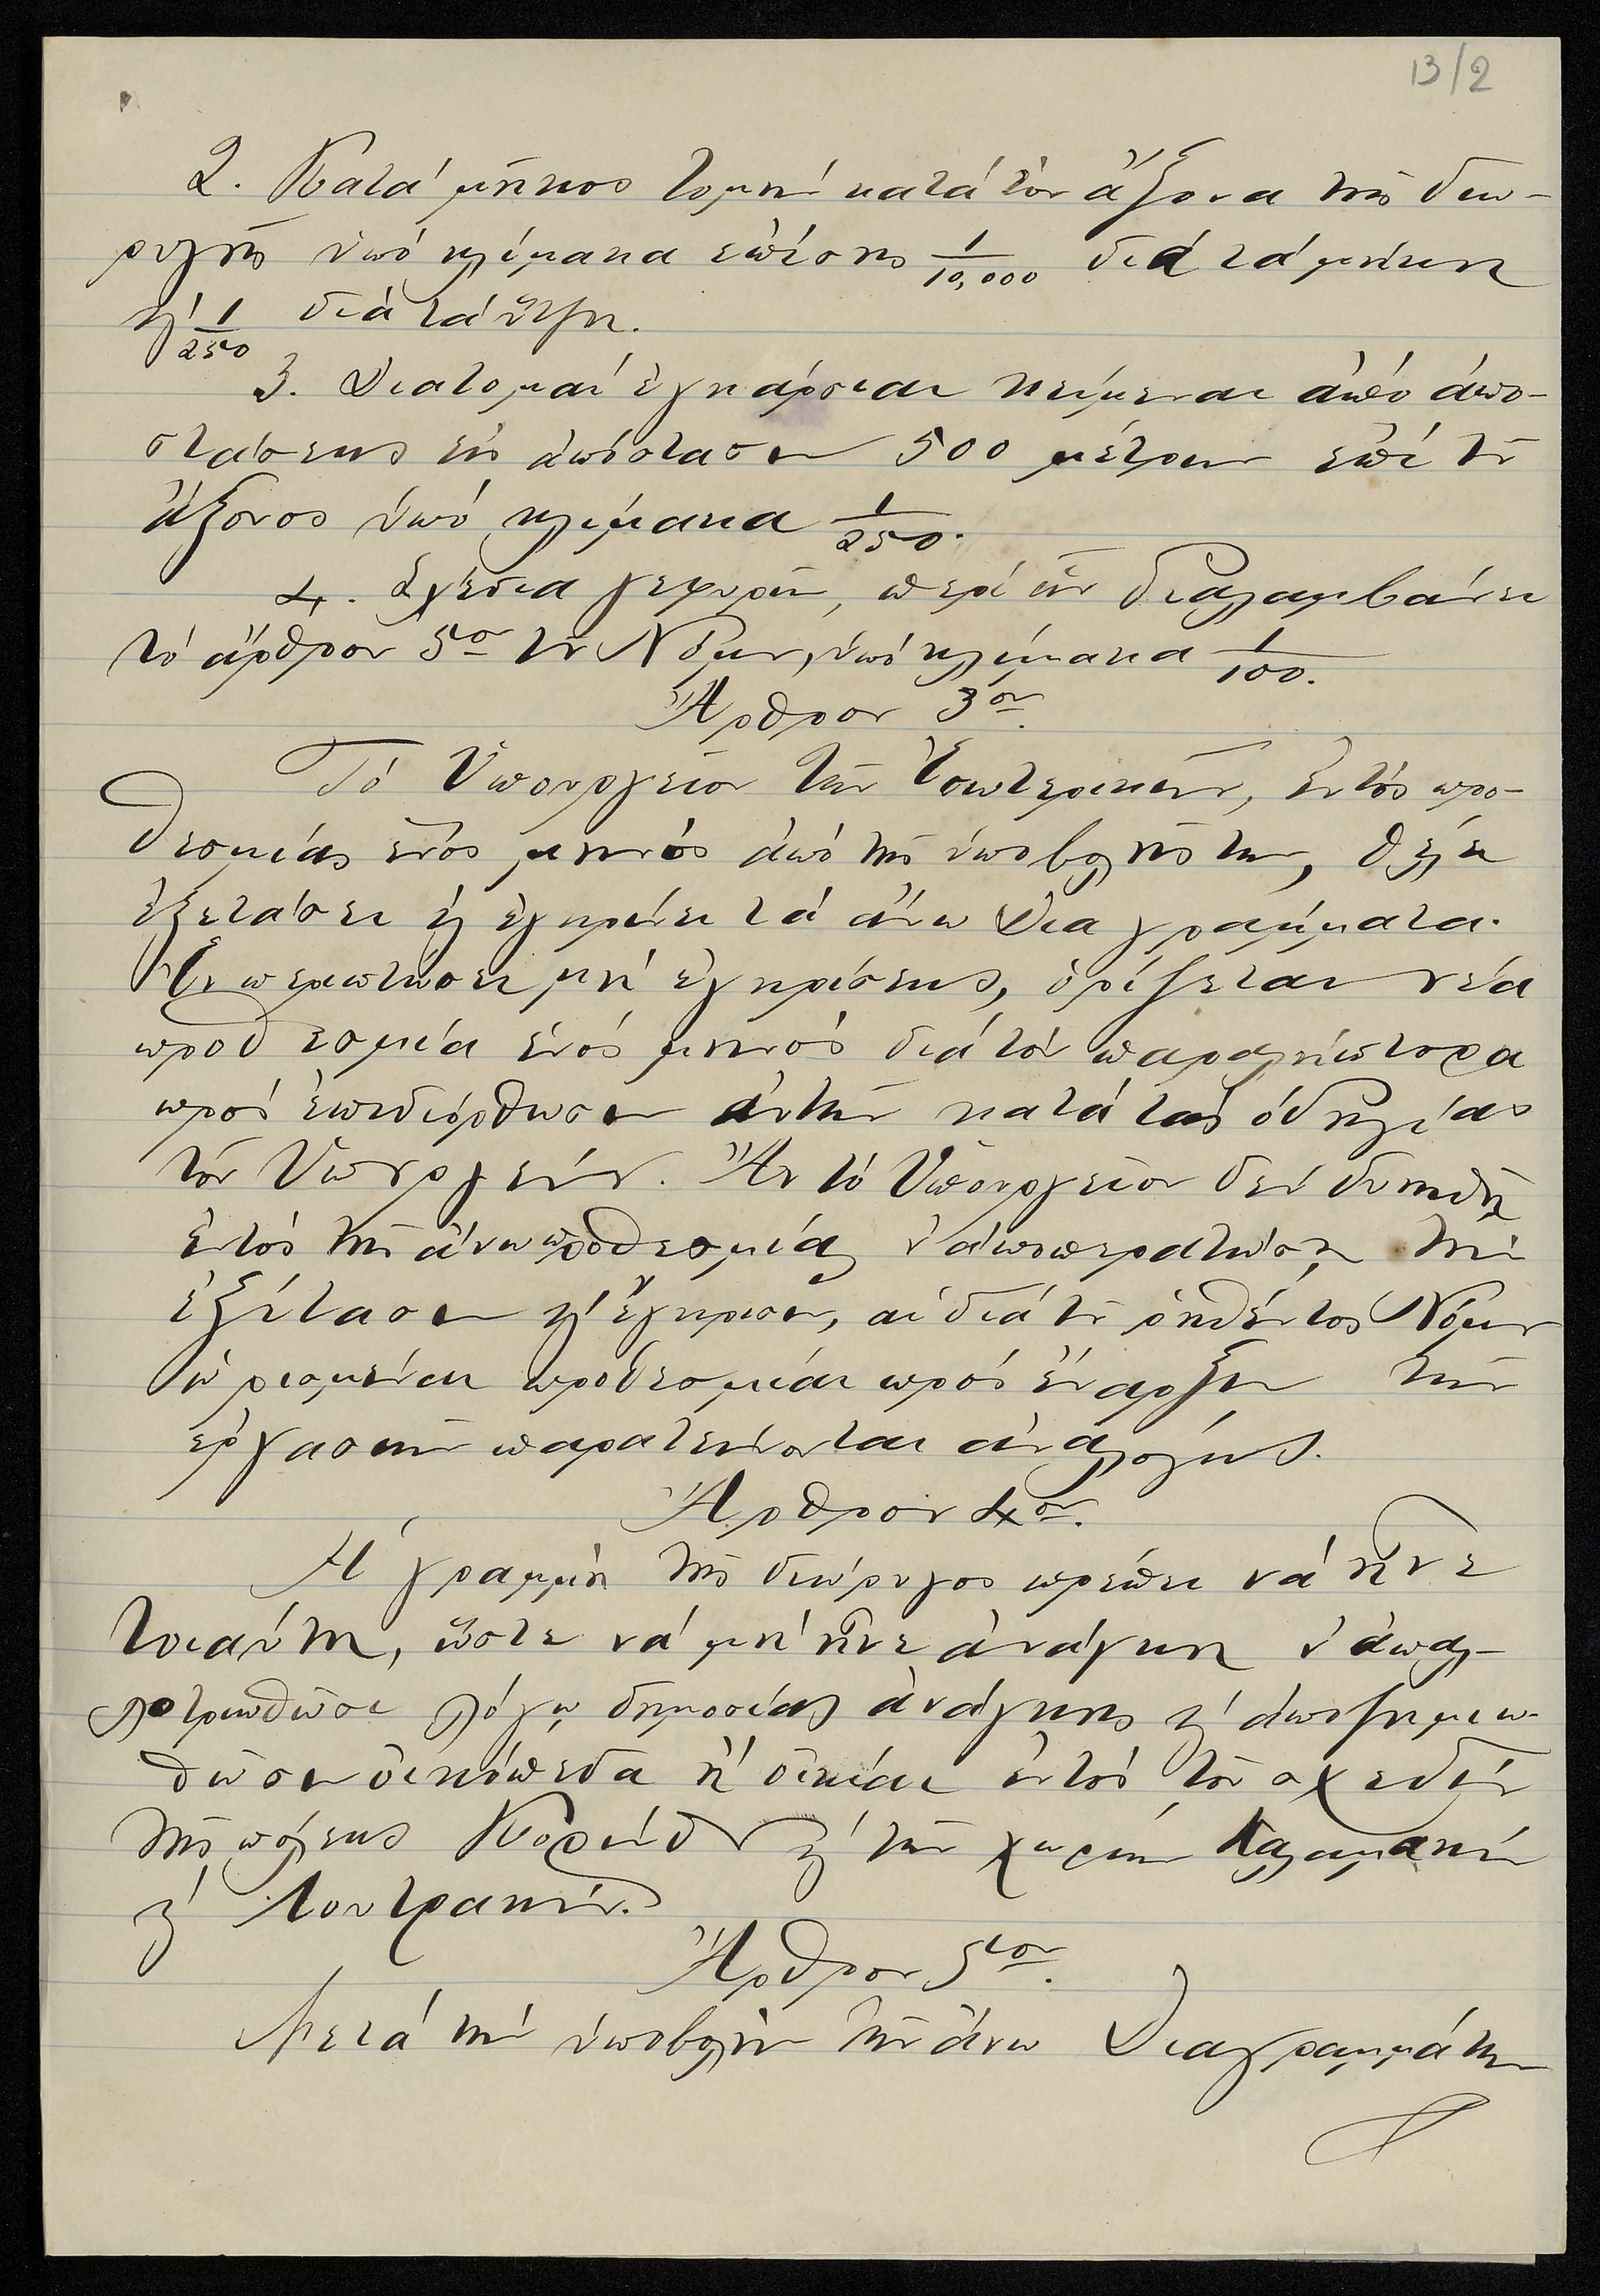 13/2
2. Κατά μῆκος τομή κατά τόν ἄξονα τῆς διω-
ρυγῆς ὑπό κλίμακα ἐπίσης 1/10,000 διά τά μήκη
ϗ́ 1/250 διά τά ὕψη.
3. Διατομαί ἐγκάρσιαι κείμεναι ἀπό ἀπο-
στάσεως εἰς ἀπόστασιν 500 μέτρων ἐπί τοῦ
ἄξονος ὑπό κλίμακα 1/250.
4. Σχέδια γεφυρῶν, περί ὧν διαλαμβάνει
τό ἄρθρον 5ον τοῦ Νόμου, ὑπό κλίμακα 1/100.
Ἄρθρον 3ον.
Τό Ὑπουργεῖον τῶν Ἐσωτερικῶν, ἐντός προ-
θεσμίας ἑνός μηνός ἀπό τῆς ὑποβολῆς των, θέλει
ἐξετάσει ϗ ἐγκρίνει τά ἄνω Διαγράμματα.
Ἐν περιπτώσει μή ἐγκρίσεως, ὁρίζεται νέα
προθεσμία ἑνός μηνός διά τόν παραλήπτορα
πρός ἐπιδιόρθωσιν αὐτῶν κατά τάς ὁδηγίας
τοῦ Ὑπουργείου. Ἄν τό Ὑπουργεῖον δέν δυνηθῇ
ἐντός τῆς ἄνω προθεσμίας ν' ἀποπερατώσῃ τήν
ἐξέτασιν ϗ́ ἔγκρισιν, αἱ διά τοῦ ῥηθέντος Νόμου
ὡρισμέναι προθεσμίαι πρός ἔναρξιν τῶν
ἐργασιῶν παρατείνονται ἀναλόγως.
Ἄρθρον 4ον.
Ἡ γραμμή τῆς διώρυγος πρέπει νά ἦνε
τοιαύτη, ὥστε νά μή ἦνε ἀνάγκη ν' ἀπαλ-
λοτριωθῶσι λόγῳ δημοσίας ἀνάγκης ϗ́ ἀποζημιω-
θῶσιν οἰκόπεδα ἤ οἰκίαι ἐντός τοῦ σχεδίου
τῆς πόλεως Κορίνθου ϗ́ τῶν χωρίων Καλαμακίου
ϗ́ Λουτρακίου.
Ἄρθρον 5τον.
Μετά τήν ὑποβολήν τῶν ἄνω Διαγραμμάτων